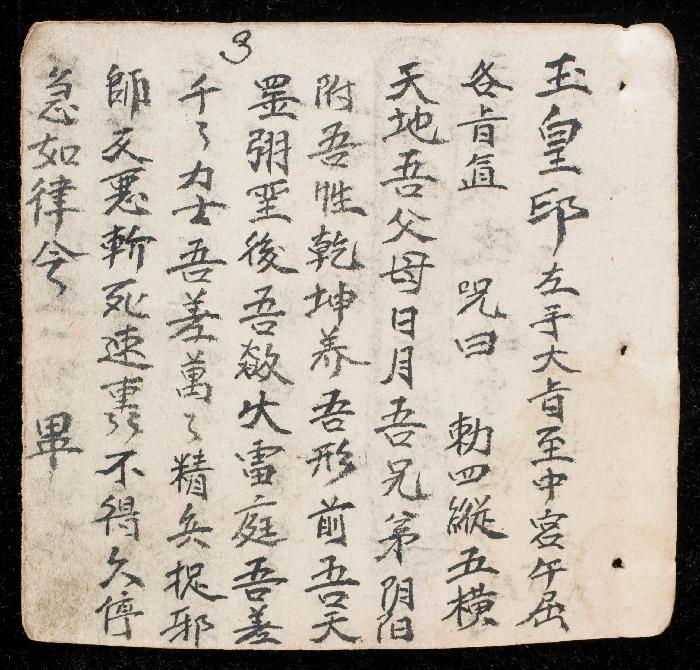 3
玉皇印左手大旨至中宮午屈
各旨直 咒曰 勅四縱五横
天地吾父母日月吾兄弟阴阳
附吾性乾坤养吾形前吾天
罡弼至後吾欻火雷庭吾差
千々力士吾差萬々精兵捉邪
師友惡斬死速去不得久停
急如律令 畢